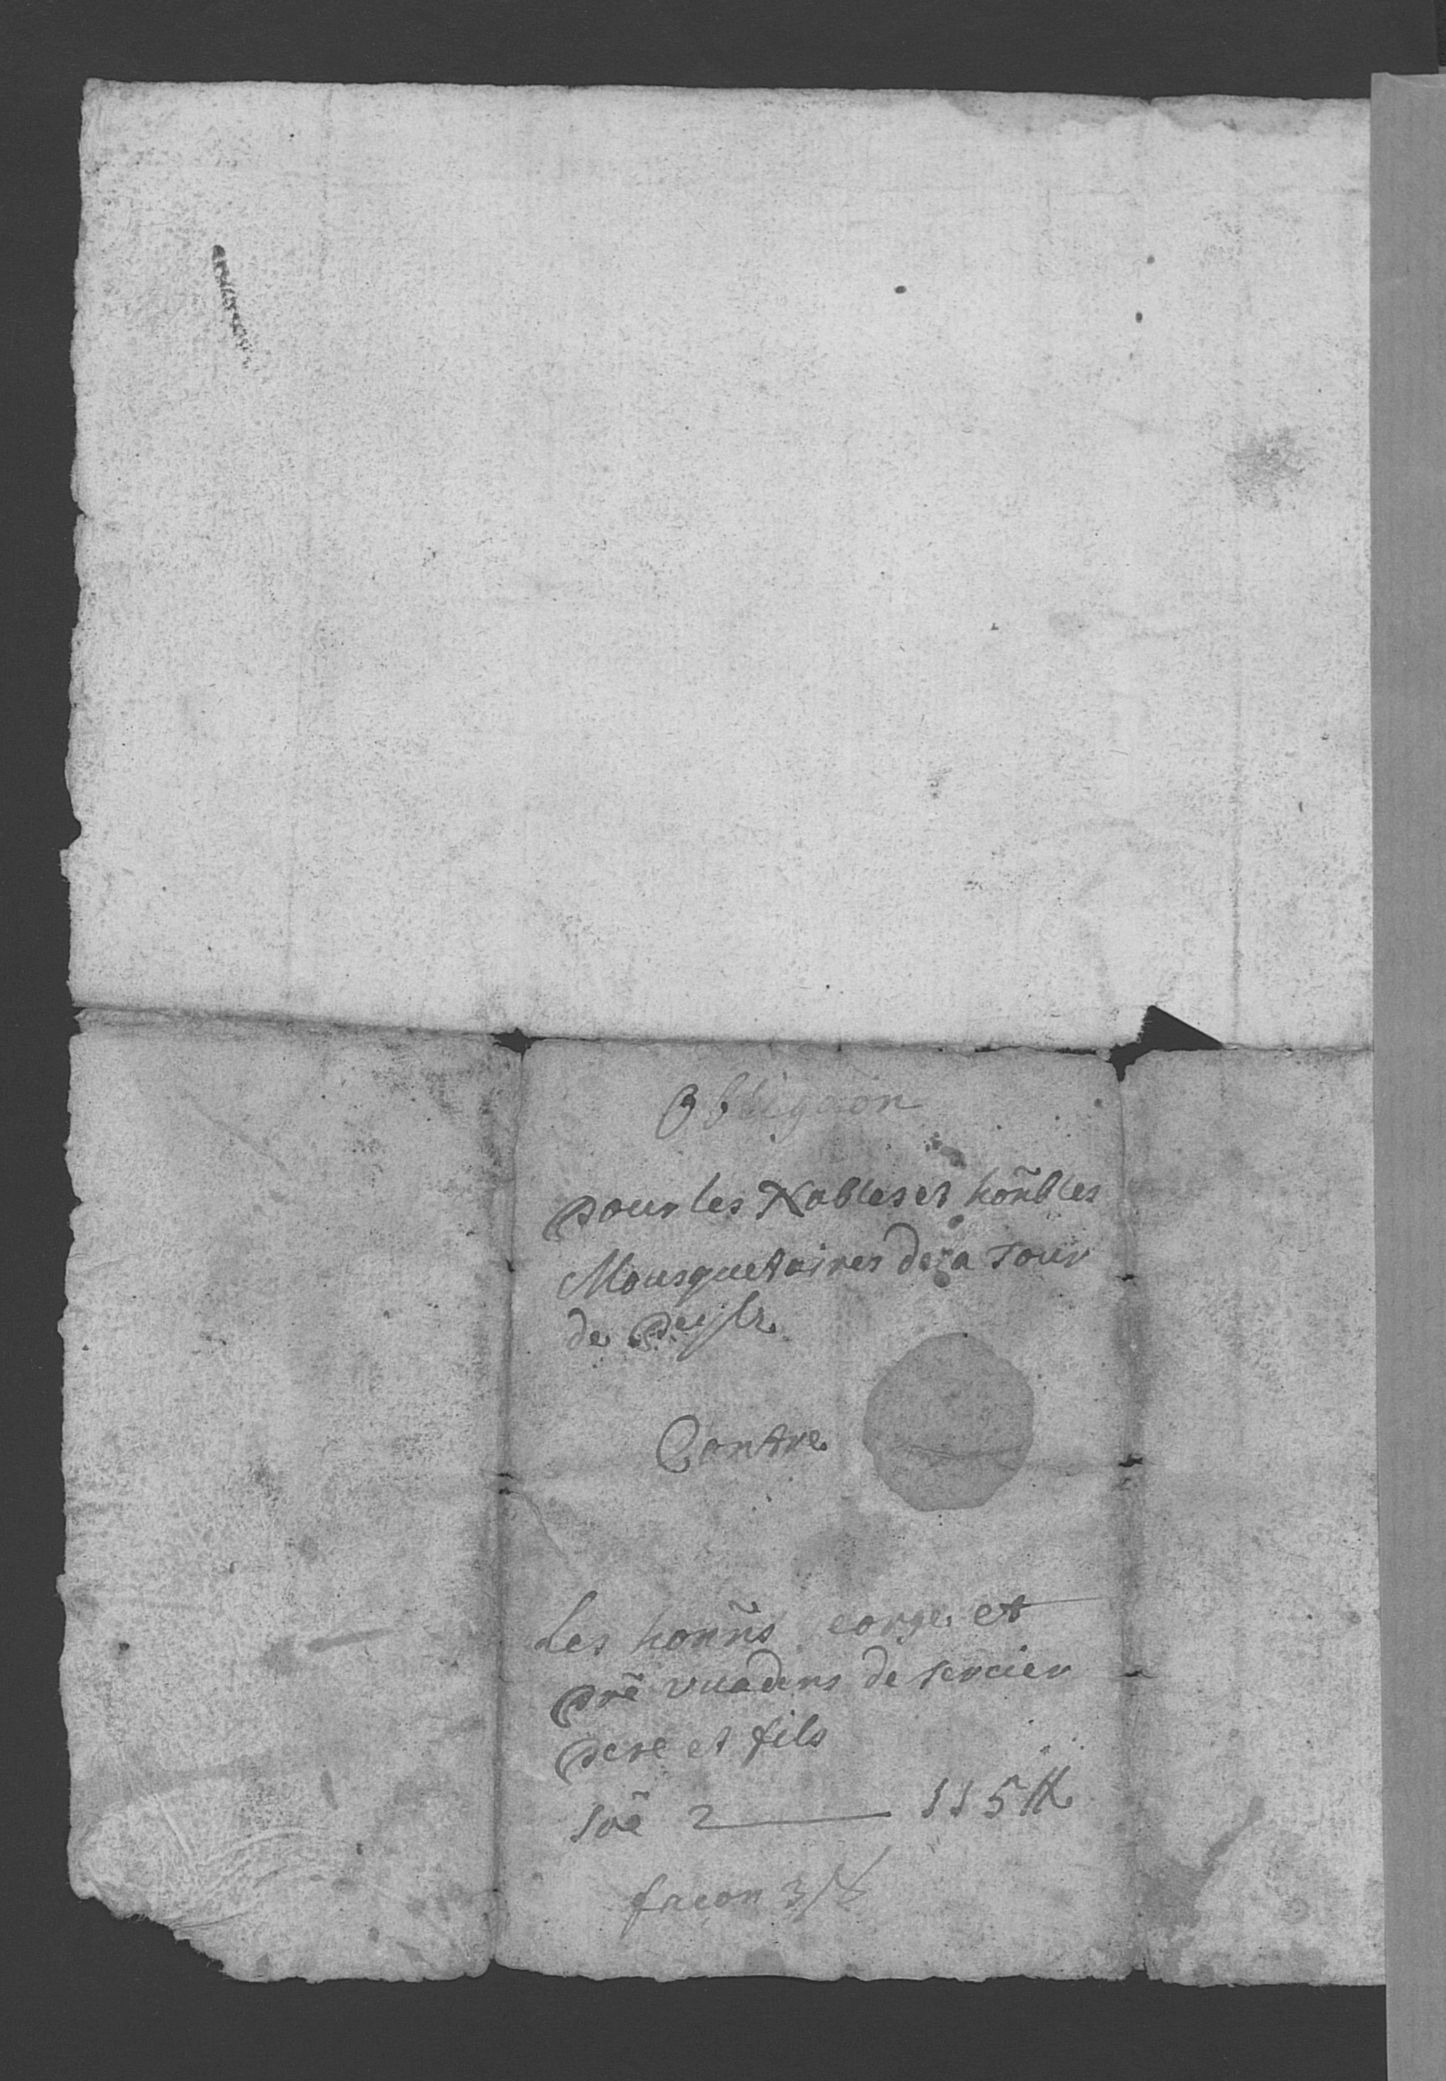 Obligaon
pour les Nobles et hoñbles
Mousquetaires de la Tour
de Peylz
Contre
Les honn̄s George et
Pr̃e Vuadens de Fercier
pere et fils
soē 2 ——— 115 ff
facon 3 ff